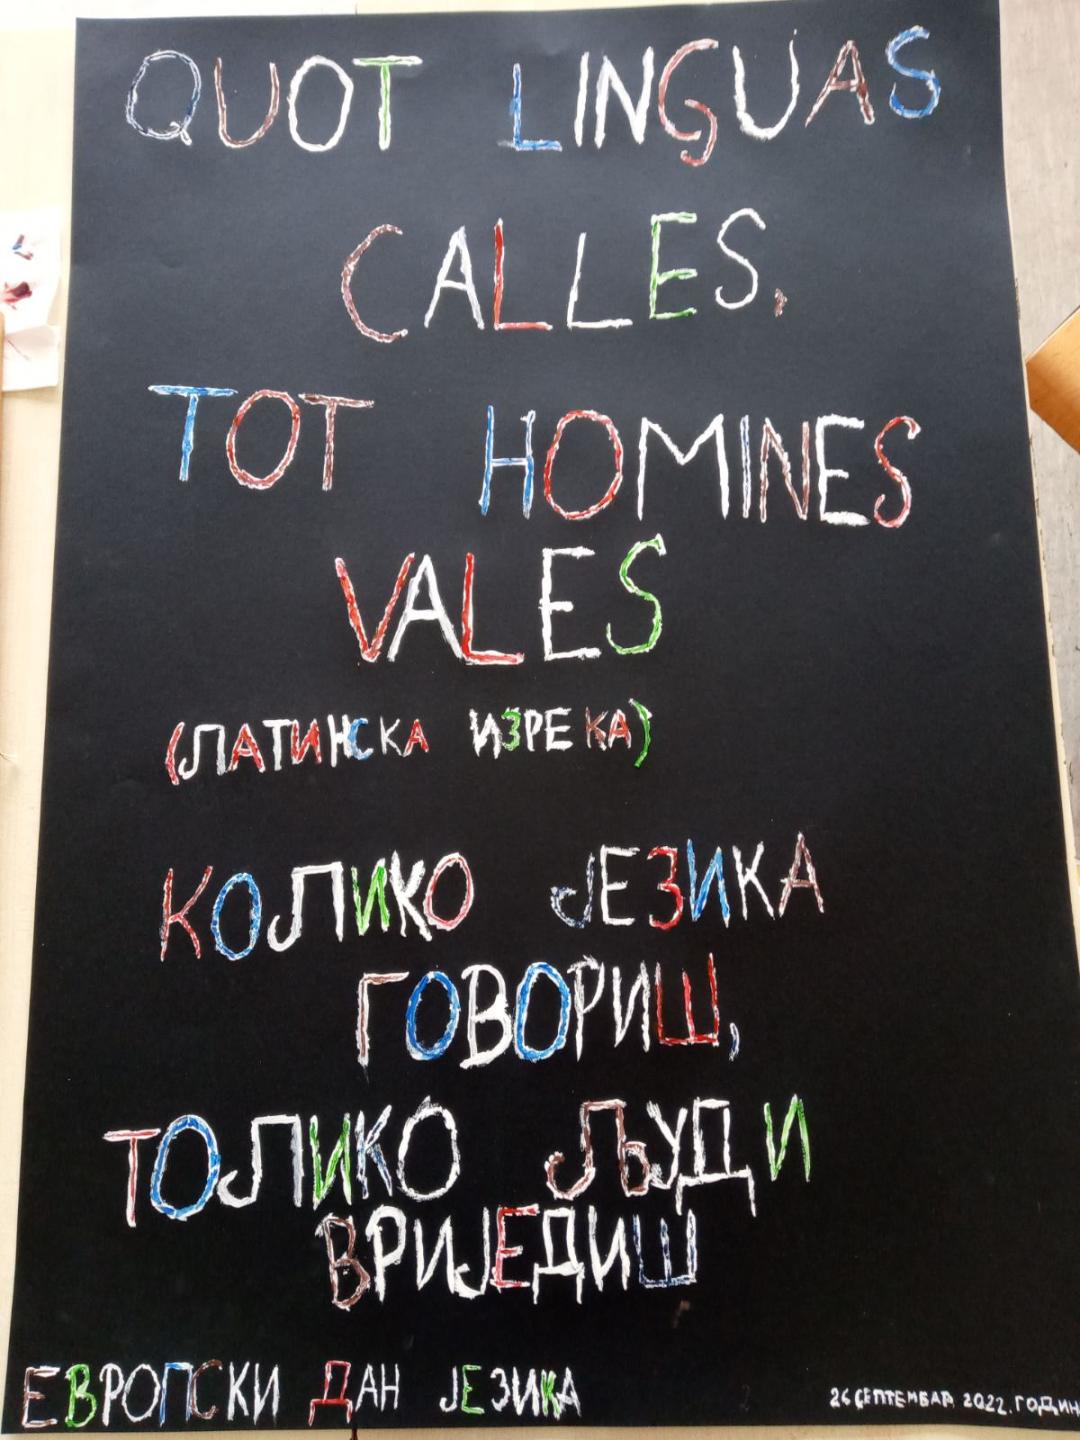 QUOT LINGUAS
CALLES,
TOT HOMINES
VALES
(ЛАТИНСКА ИЗРЕКА)
КОЛИКО ЈЕЗИКА
ГОВОРИШ,
ТОЛИКО ЉУДИ
ВРИЈЕДИШ
ЕВРОПСКИ ДАН ЈЕЗИКА
26 СЕПТЕМБАР 2022. ГОДИН